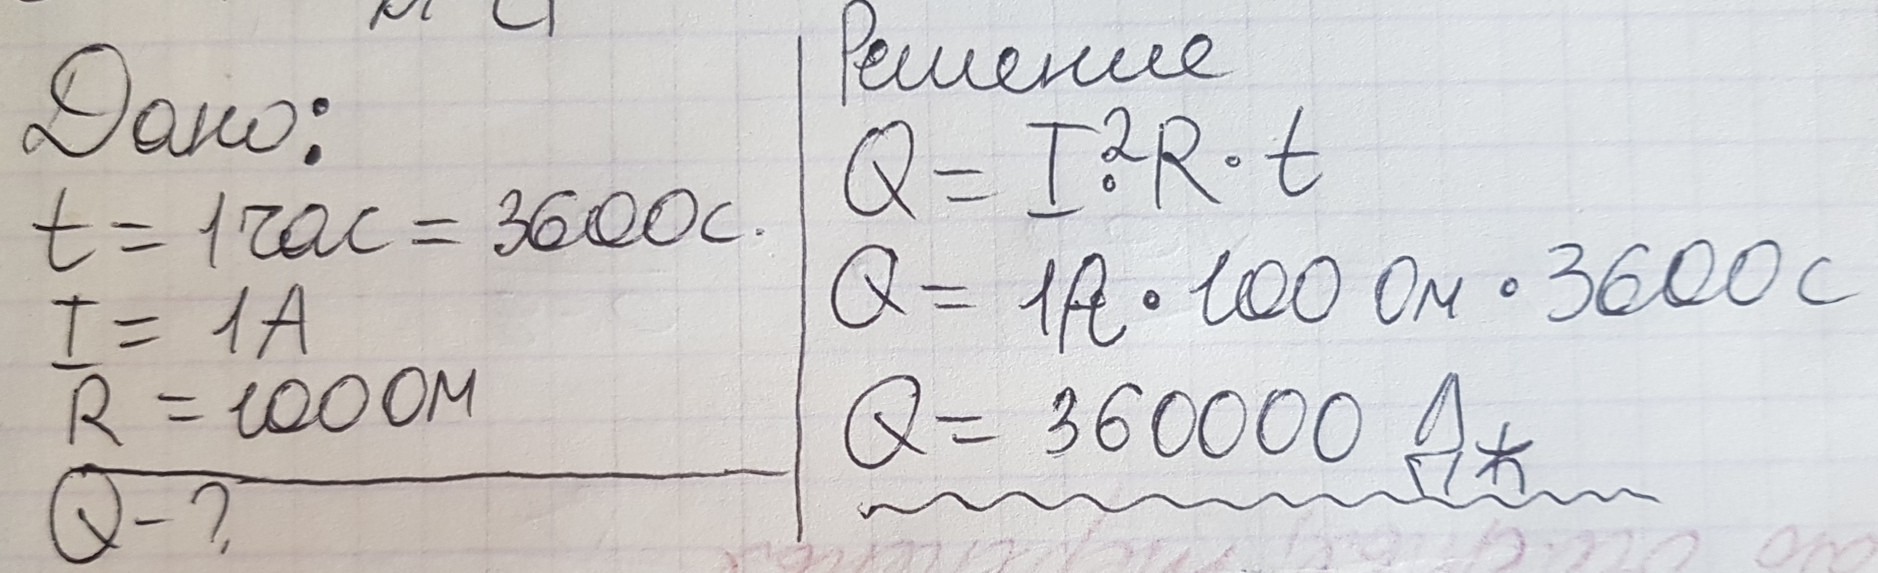 Дано:
t = 1 час = 3600 с.
I = 1А
R = 100 Ом
Q - ?
Решение
Q = I²·R·t
Q = 1А · 100 Ом · 3600 с
Q = 360000 Дж